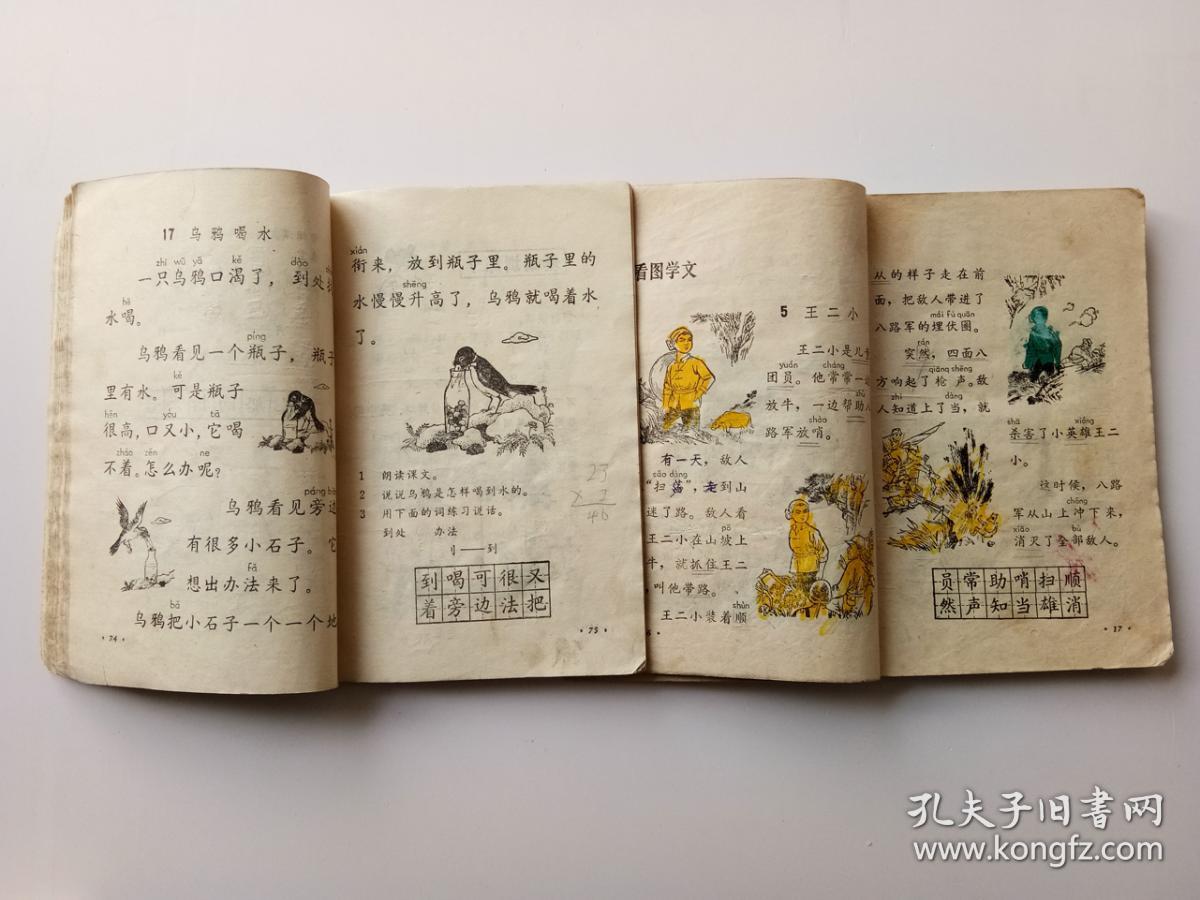 17 乌鸦喝水
zhī wū yā kě dào
一只乌鸦口渴了，到处找
hē
水喝。
píng
乌鸦看见一个瓶子，瓶子
kě
里有水。可是瓶子
hěn yòu tā
很高，口又小，它喝
zháo zěn ne
不着。怎么办呢？
páng
乌鸦看见旁边
有很多小石子。它
fǎ
想出办法来了。
bǎ
乌鸦把小石子一个一个地
·74·
xián
衔来，放到瓶子里。瓶子里的
shēng
水慢慢升高了，乌鸦就喝着水
了。
1 朗读课文。
2 说说乌鸦是怎样喝到水的。
3 用下面的词练习说话。
到处 办法
刂——到
到喝可很又
着旁边法把
·75·
23
× 2
46
看图学文
5 王二小
王二小是儿
yuán cháng
团员。他常常一
zhù
放牛，一边帮助
shào
路军放哨。
有一天，敌人
sǎo dàng
“扫荡”，走到山
迷了路。敌人看
pō
王二小在山坡上
牛，就抓住王二
，叫他带路。
shùn
王二小装着顺
从的样子走在前
面，把敌人带进了
mái fú quān
八路军的埋伏圈。
rán
突然，四面八
qiāng shēng
方响起了枪声。敌
zhī dàng
人知道上了当，就
shā xióng
杀害了小英雄王二
小。
这时侯，八路
chōng
军从山上冲下来，
xiāo bù
消灭了全部敌人。
员常助哨扫顺
然声知当雄消
·17·
孔夫子旧书网
www.kongfz.com